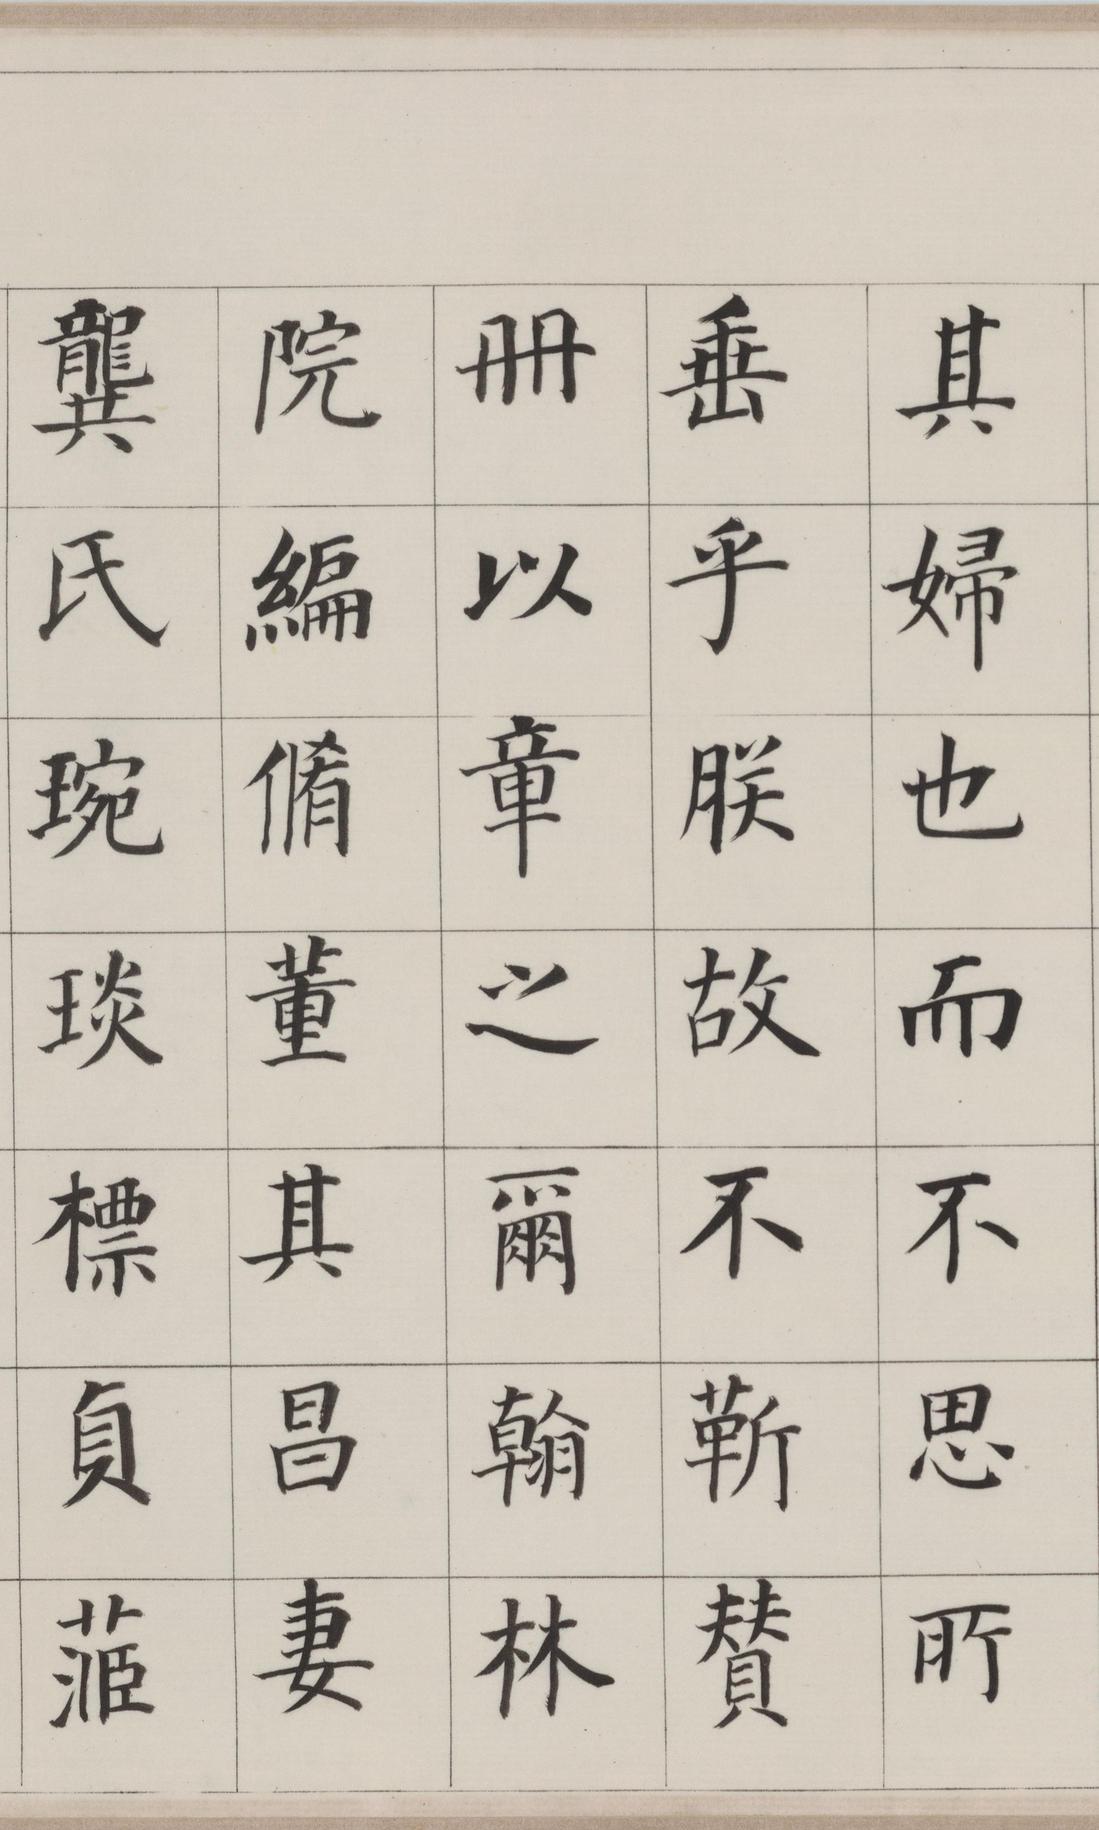 其婦也而不思所
垂乎朕故不靳賛
冊以章之爾翰林
院編脩董其昌妻
龔氏琬琰標貞